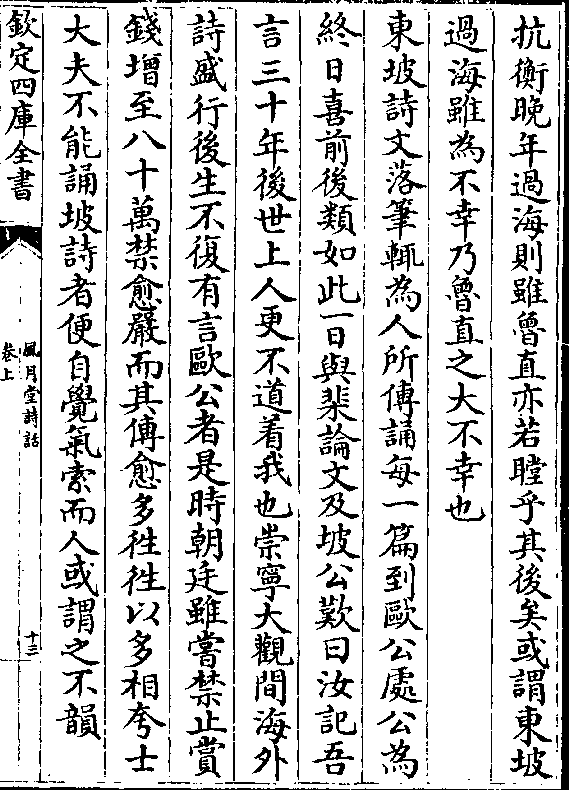 抗衡晚年過海則雖魯直亦若瞠乎其後矣或謂東坡
過海雖為不幸乃魯直之大不幸也
東坡詩文落筆輒為人所傳誦每一篇到歐公處公為
終日喜前後類如此一日與棐論文及坡公歎曰汝記吾
言三十年後世上人更不道着我也崇寧大觀間海外
詩盛行後生不復有言歐公者是時朝廷雖嘗禁止賞
錢增至八十萬禁愈嚴而其傳愈多徃徃以多相夸士
大夫不能誦坡詩者便自覺氣索而人或謂之不韻
欽定四庫全書
風月堂詩話
卷上
十三